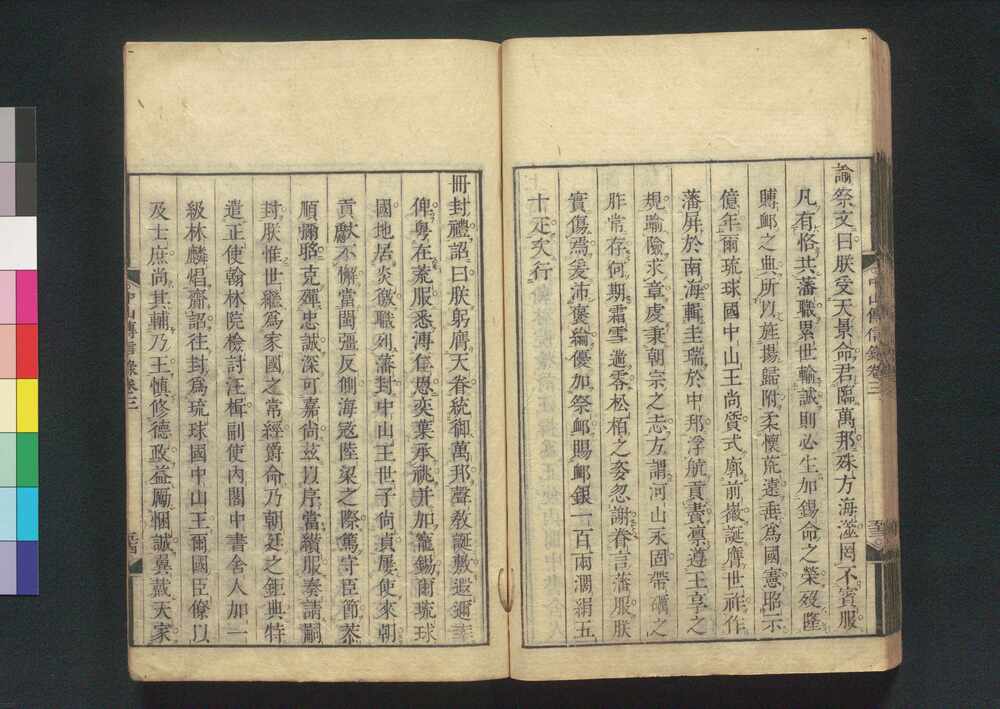 諭祭文曰朕受天景命君臨萬邦殊方海澨罔不賓服
凡有恪共藩職累世輸誠則必生加錫命之榮歿隆
賻卹之典所以旌揚歸附柔懷荒遠垂為國憲昭示
億年爾琉球國中山王尚質式廓前徽誕膺世祚作
藩屏於南海輯圭瑞於中邦浮航貢賮稟遵王享之
規踰險求章虔秉朝宗之志方謂河山永固帶礪之
胙常存何期霜雪遄零松栢之姿忽謝眷言藩服朕
實傷焉爰沛褒綸優加祭卹賜卹銀一百兩潣絹五
十疋次行
中山傳信錄卷三
冊封禮詔曰朕躬膺天眷統御萬邦聲教誕敷遐邇率
俾粵在荒服悉溥仁恩奕葉承祧并加寵錫爾琉球
國地居炎徼職列藩封中山王世子尚貞屢使來朝
貢獻不懈當閩疆反側海寇陸梁之際篤守臣節恭
順彌昭克殫忠誠深可嘉尚茲以序當纘服奏請嗣
封朕惟世繼為家國之常經爵命乃朝廷之鉅典特
遣正使翰林院檢討汪楫副使內閣中書舍人加一
級林麟焻齎詔往封為琉球國中山王爾國臣僚以
及士庶尚其輔乃王慎修德政益勵悃誠翼戴天家
中山傳信錄卷三